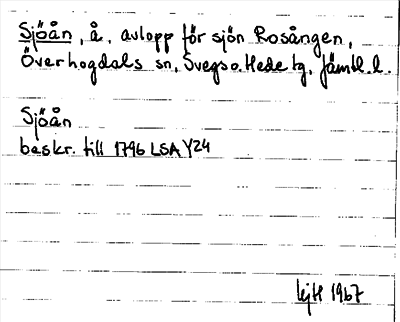 Sjöån, å, avlopp för sjön Rosången,
Överhogdals sn, Svegs o. Hede tg, Jämtl. l.
Sjöån
beskr. till 1796 LSA Y24
1967